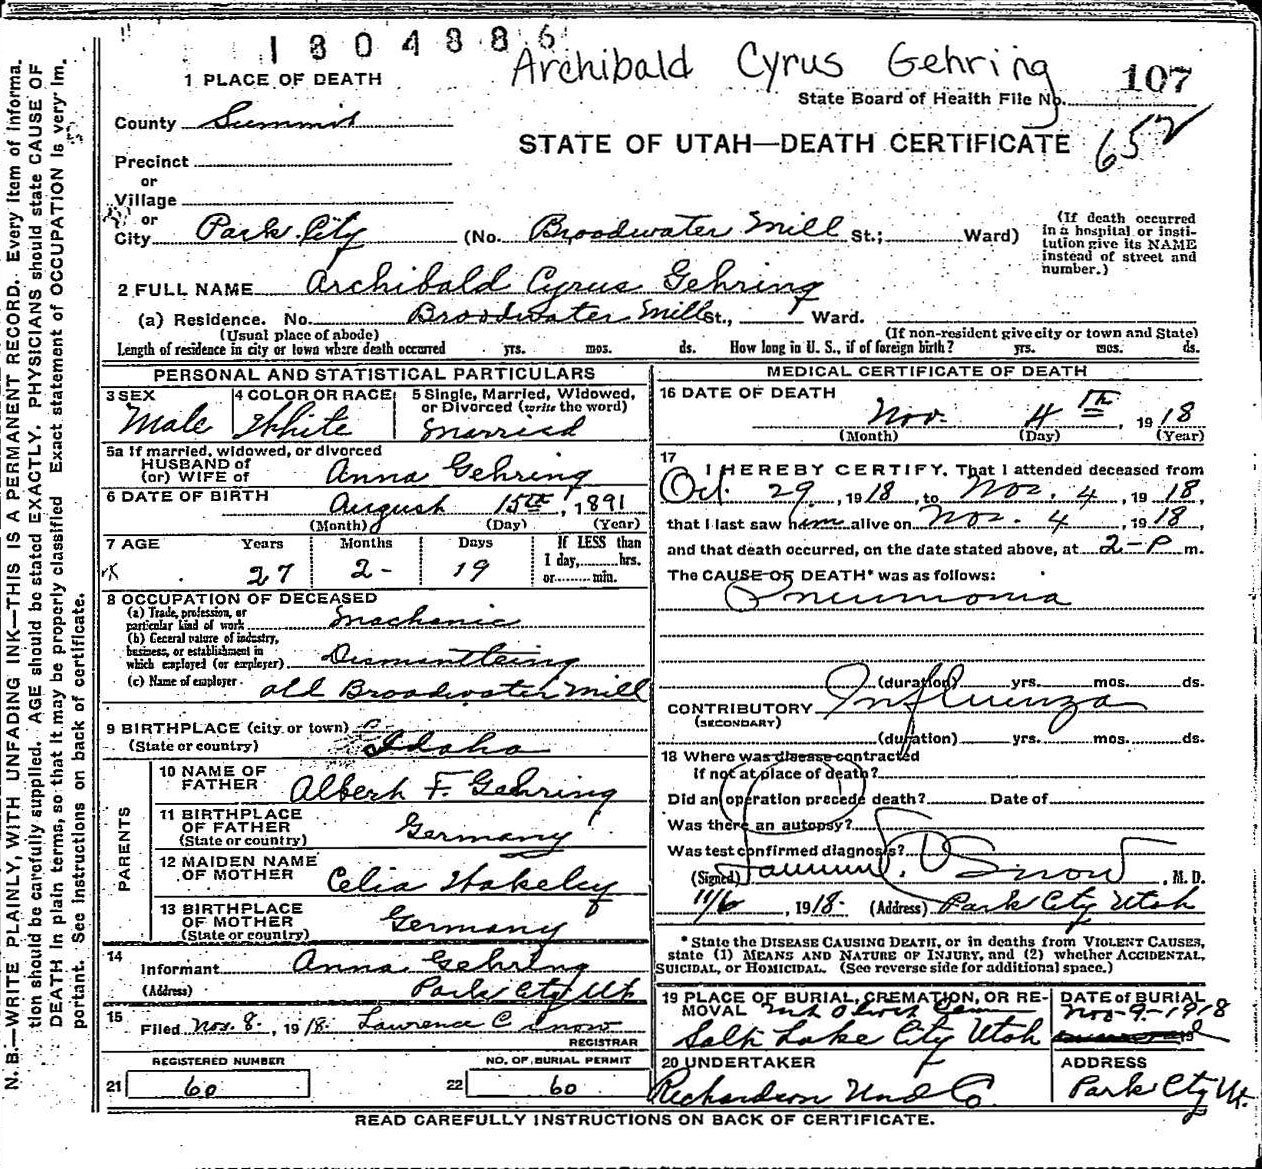 1804886
Archibald Cyrus Gehring
107
1 PLACE OF DEATH
State Board of Health File No.
652
County Summit
STATE OF UTAH—DEATH CERTIFICATE
Precinct
or
Village
or
City Park City (No. Broodwater Mill St.; Ward)
(If death occurred in a hospital or institution give its NAME instead of street and number.)
2 FULL NAME Archibald Cyrus Gehring
(a) Residence. No. Broodwater Mill St., Ward.
(Usual place of abode) (If non-resident give city or town and State)
Length of residence in city or town where death occurred yrs. mos. ds. How long in U. S., if of foreign birth? yrs. mos. ds.
PERSONAL AND STATISTICAL PARTICULARS
3 SEX 4 COLOR OR RACE 5 Single, Married, Widowed,
or Divorced (write the word)
Male White Married
5a If married, widowed, or divorced
HUSBAND of
(or) WIFE of Anna Gehring
6 DATE OF BIRTH August 15th, 1891
(Month) (Day) (Year)
7 AGE Years Months Days If LESS than
1 day, hrs.
27 2- 19 or min.
8 OCCUPATION OF DECEASED
(a) Trade, profession, or
particular kind of work Machanic
(b) General nature of industry,
business, or establishment in
which employed (or employer) Dismantleing
(c) Name of employer old Broadwater Mill
9 BIRTHPLACE (city or town)
(State or country) Idaho
PARENTS
10 NAME OF
FATHER Albert F. Gehring
11 BIRTHPLACE
OF FATHER
(State or country) Germany
12 MAIDEN NAME
OF MOTHER Celia Hakeley
13 BIRTHPLACE
OF MOTHER
(State or country) Germany
14
Informant Anna Gehring
(Address) Park City Ut
15
Filed Nov. 8, 1918. Lawrence C Snow
REGISTRAR
REGISTERED NUMBER NO. OF BURIAL PERMIT
21 60 22 60
MEDICAL CERTIFICATE OF DEATH
16 DATE OF DEATH
Nov. 4th, 1918
(Month) (Day) (Year)
17
I HEREBY CERTIFY, That I attended deceased from
Oct. 29, 1918, to Nov. 4, 1918,
that I last saw him alive on Nov. 4, 1918,
and that death occurred, on the date stated above, at 2-P m.
The CAUSE OF DEATH* was as follows:
Pneumonia
(duration) yrs. mos. ds.
CONTRIBUTORY Influenza
(SECONDARY)
(duration) yrs. mos. ds.
18 Where was disease contracted
If not at place of death?
Did an operation precede death? Date of
Was there an autopsy?
Was test confirmed diagnosis?
(Signed) Snow, M. D.
11/6, 1918. (Address) Park City Utah
* State the DISEASE CAUSING DEATH, or in deaths from VIOLENT CAUSES,
state (1) MEANS AND NATURE OF INJURY, and (2) whether ACCIDENTAL,
SUICIDAL, or HOMICIDAL. (See reverse side for additional space.)
19 PLACE OF BURIAL, CREMATION, OR RE-
MOVAL Mt Olivet Cem
Salt Lake City Utah
DATE of BURIAL
Nov-9-1918
20 UNDERTAKER
Richardson Und Co.
ADDRESS
Park City Ut.
READ CAREFULLY INSTRUCTIONS ON BACK OF CERTIFICATE.
N. B.—WRITE PLAINLY, WITH UNFADING INK—THIS IS A PERMANENT RECORD. Every item of informa-
tion should be carefully supplied. AGE should be stated EXACTLY. PHYSICIANS should state CAUSE OF
DEATH in plain terms, so that it may be properly classified. Exact statement of OCCUPATION is very im-
portant. See instructions on back of certificate.